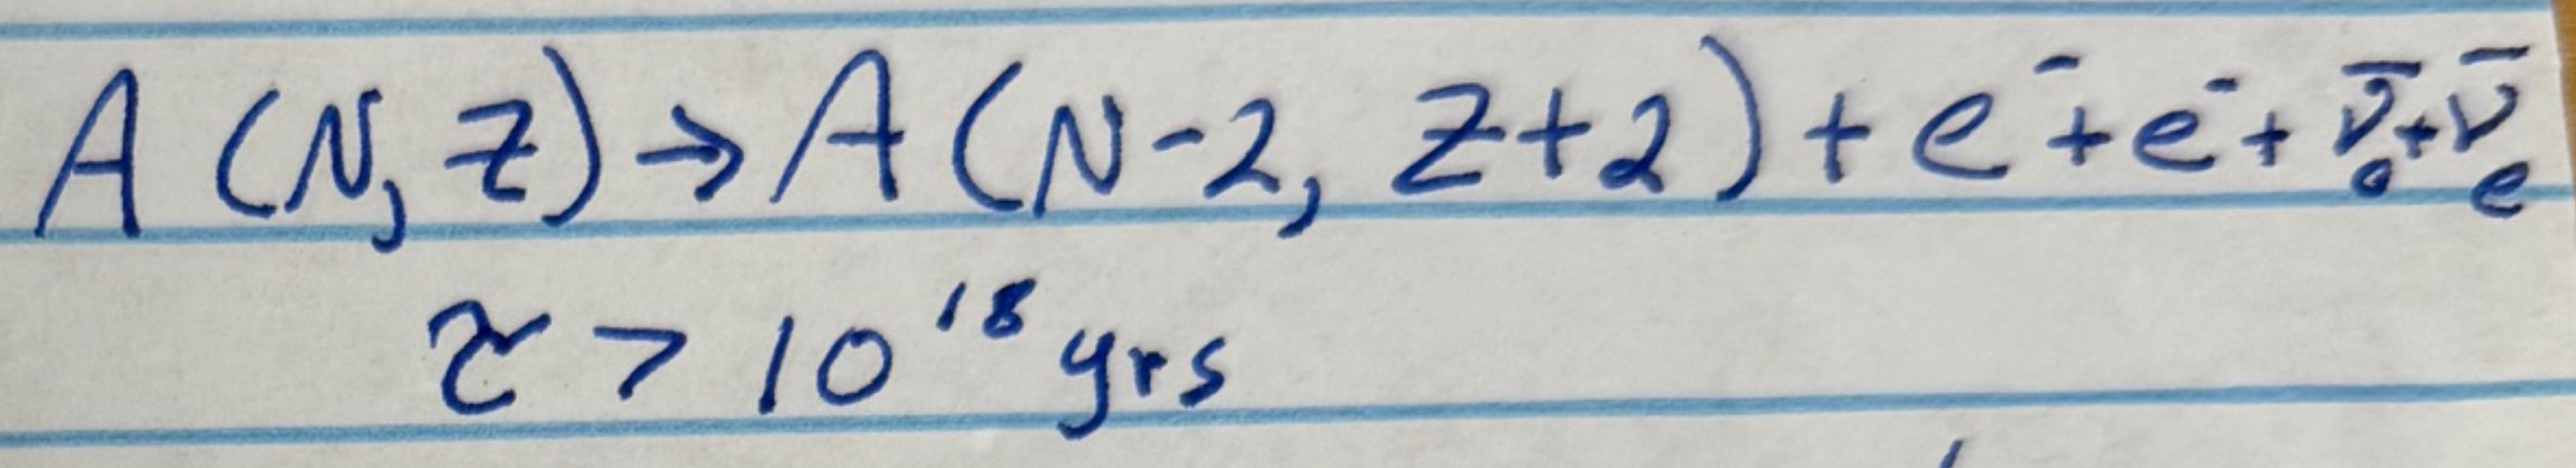 A (N, Z) → A (N-2, Z+2) + e⁻ + e⁻ + ν̄ₑ + ν̄ₑ
τ > 10¹⁸ yrs